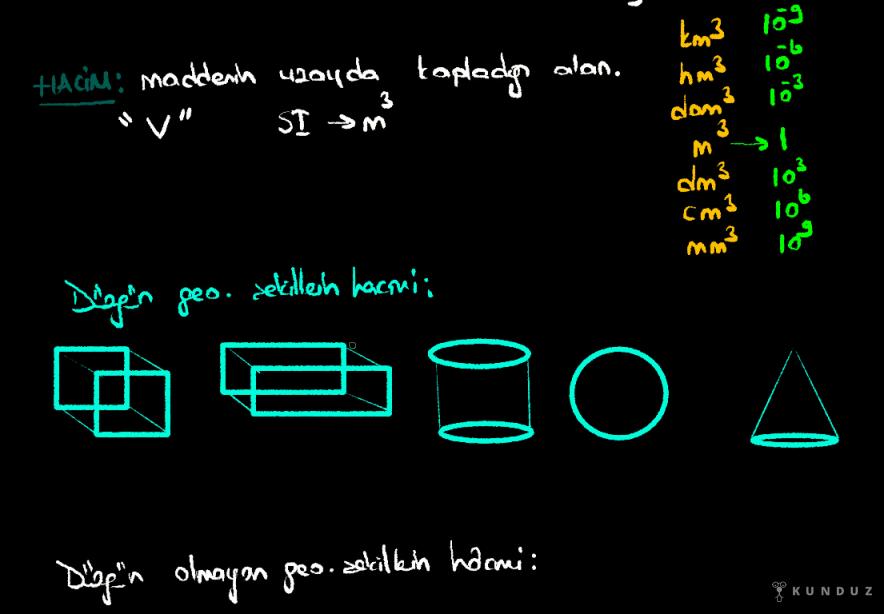 HACİM: maddenin uzayda kapladığı alan.
"V" SI → m³
km³ 10⁻⁹
hm³ 10⁻⁶
dam³ 10⁻³
m³ → 1
dm³ 10³
cm³ 10⁶
mm³ 10⁹
Düzgün geo. şekillerin hacmi:
Düzgün olmayan geo. şekillerin hacmi:
KUNDUZ